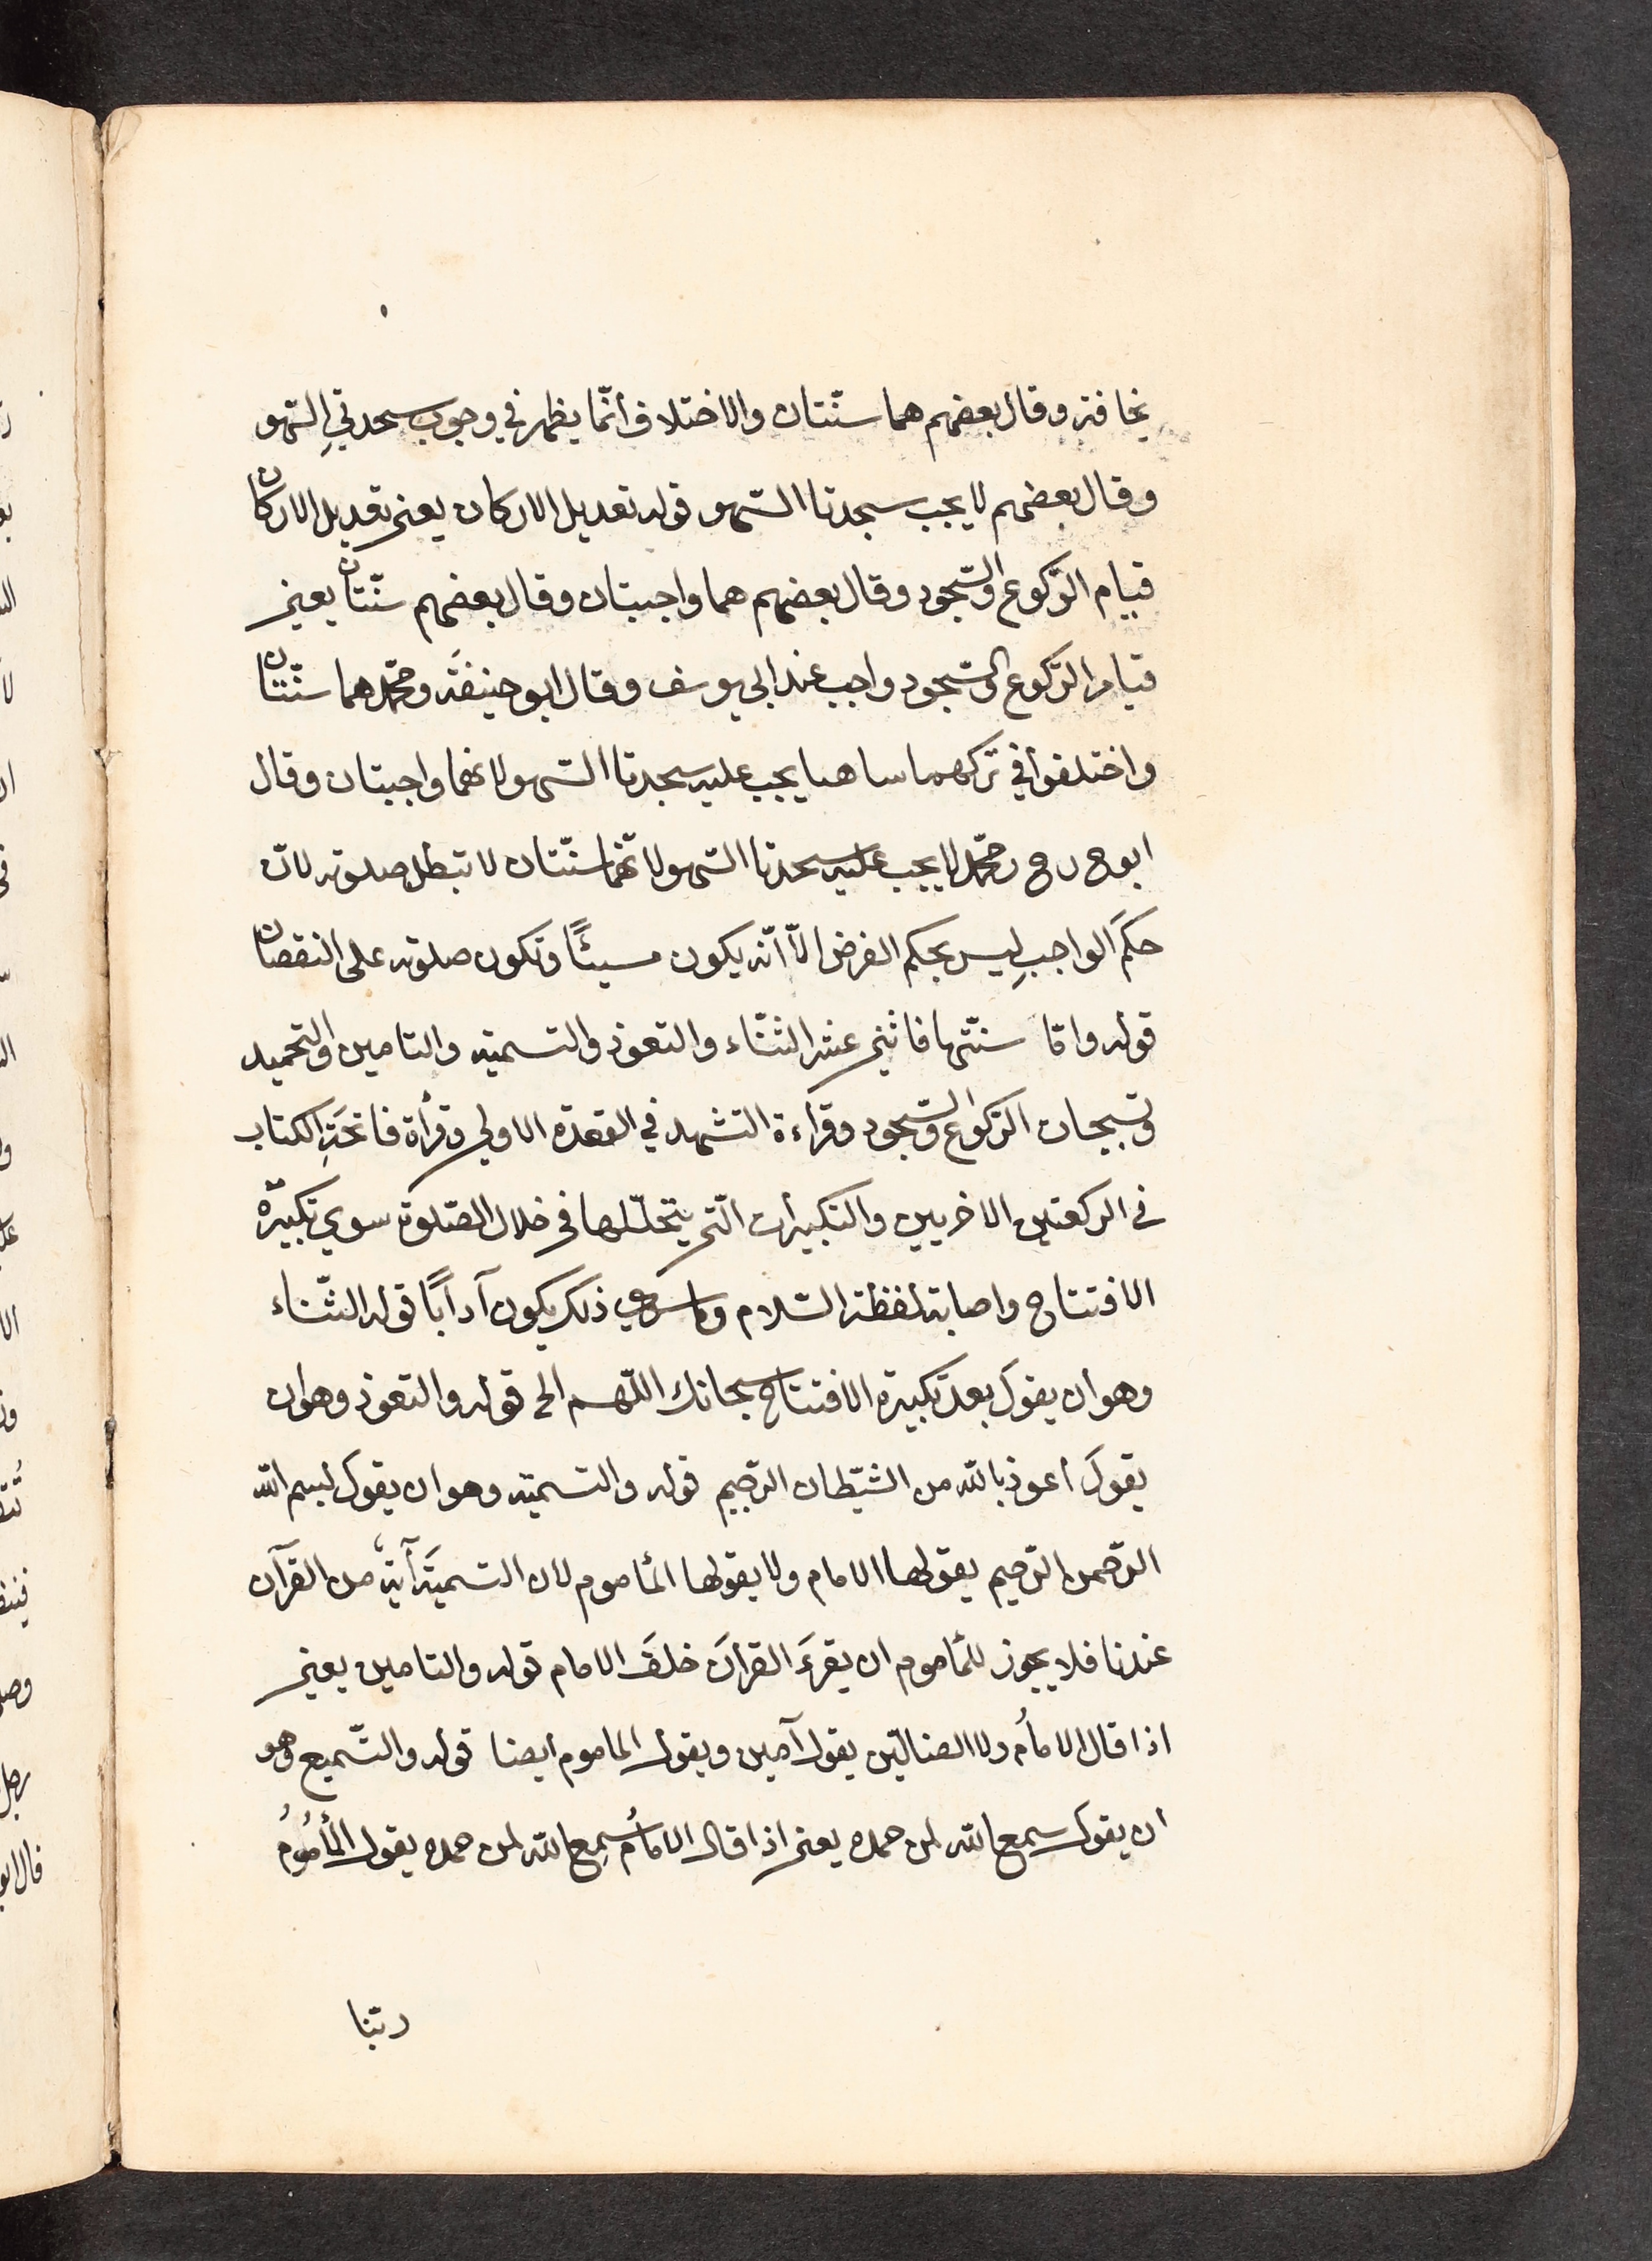 يخافته وقال بعضهم هما سنّتان والاختلاف أنّما يظهر في وجوب سجدتي السّهو
وقال بعضهم لا يجب سجدتا السّهو قوله تعديل الاركان يعني تعديل الاركان
قيام الرّكوع والسّجود وقال بعضهم هما واجبتان وقال بعضهم سنّتان يعني
قيام الرّكوع والسّجود واجب عند ابي يوسف وقال ابو حنيفَة ومحمّد هما سنّتان
واختلفوا في تركهما ساهيا يجب عليه سجدتا السّهو لانهما واجبتان وقال
ابو ح رح ومحمّد لا يجب عليه سجدتا السّهو لانّهما سنّتان لا تبطل صلوته لانّ
حكمَ الواجبِ ليس بحكم الفرض الاّ انّه يكون مسيئًا وتكون صلوته على النقصان
قوله وامّا سنّتها فاثني عشر الثنّاء والتعوّذ والتسمية والتامين والتحميد
وتسبيحات الرّكوع والسّجود وقراءة التشهد في القعدة الاولي وقرأة فاتحَةِ الكتاب
في الركعتين الاخريين والتكبيرات الّتي يتخلّلها في خلال الصّلوة سوي تكبيرة
الافتتاح واصابة لفظة السّلام وما سوي ذلك يكون آدابًا قوله الثّناء
وهو ان يقولَ بعد تكبيرة الافتتاح سبحانك اللّهم الى قوله والتعوذ وهو ان
يقولَ اعوذ بالله من الشّيطان الرّجيم قوله والتسمية وهو ان يقول بسم الله
الرّحمن الرّحيم يقولها الامام ولا يقولها المأموم لان التسميَة آيةٌ من القرآن
عندنا فلا يجوز للمأموم ان يقرءَ القرأنَ خلفَ الامام قوله والتامين يعني
اذا قال الامامُ ولا الضالّين يقول آمين ويقول الماموم ايضا قوله والتّسميع وهو
ان يقول سمع الله لمن حمده يعني اذا قال الامامُ سمِع الله لمن حمده يقول المأمُومُ
ربّنا